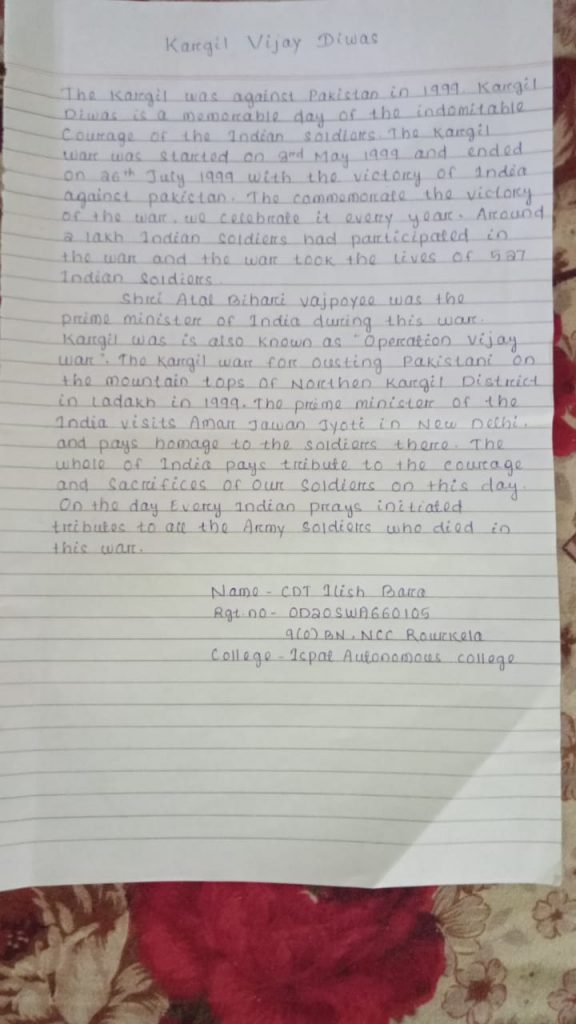 Kargil Vijay Diwas
The Kargil was against Pakistan in 1999. Kargil
Diwas is a memorable day of the indomitable
Courage of the Indian soldiers. The Kargil
war was started on 2nd May 1999 and ended
on 26th July 1999 with the victory of India
against pakistan. The commemorate the victory
of the war. we celebrate it every year. Around
2 lakh Indian soldiers had participated in
the war and the war took the lives of 527
Indian Soldiers.
Shri Atal Bihari vajpoyee was the
prime minister of India during this war.
Kargil was is also known as "Operation vijay
war". The Kargil war for ousting Pakistani on
the mountain tops of Northen Kargil District
in Ladakh in 1999. The prime minister of the
India visits Amar Jawan Jyoti in New Delhi.
and pays homage to the soldiers there. The
whole of India pays tribute to the courage
and Sacrifices of our Soldiers on this day.
On the day Every Indian prays initiated
tributes to all the Army Soldiers who died in
this war.
Name - CDT Ilish Barra
Rgt. no - OD20SWA660105
9(O) BN, NCC Rourkela
College - Ispat Autonomous college